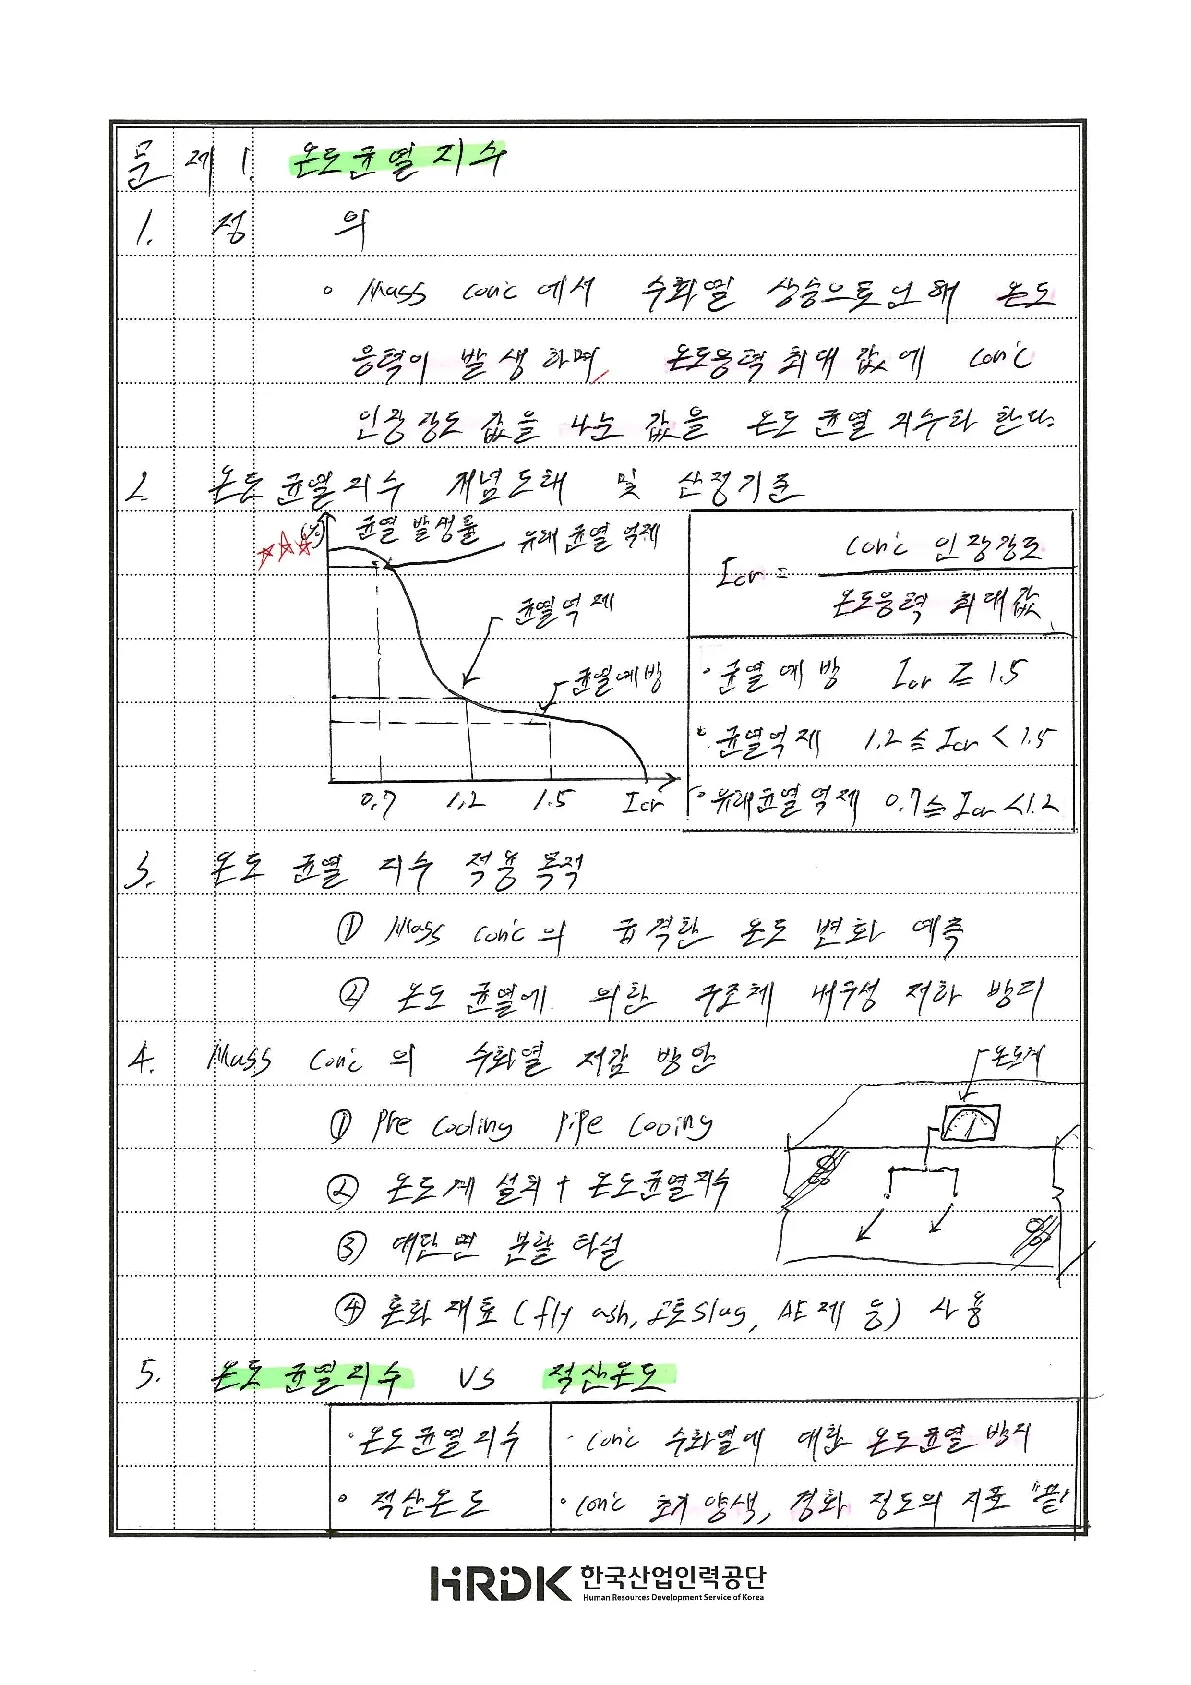 문제 1. 온도균열지수
1. 정 의
○ Mass Con'c에서 수화열 상승으로인해 온도
응력이 발생하며, 온도응력 최대값에 Con'c
인장강도 값을 나눈 값을 온도균열 지수라 한다.
2. 온도균열지수 개념도해 및 산정기준
(%) 균열 발생률
유해균열 억제
균열억제
균열예방
0.7 1.2 1.5 Icr
Icr = Con'c 인장강도
온도응력 최대값
· 균열예방 Icr ≥ 1.5
· 균열억제 1.2 ≤ Icr < 1.5
· 유해균열억제 0.7 ≤ Icr < 1.2
3. 온도 균열 지수 적용목적
① Mass Con'c의 급격한 온도 변화 예측
② 온도 균열에 의한 구조체 내구성 저하 방지
4. Mass Con'c의 수화열 저감 방안
온도계
① Pre Cooling Pipe Cooing
② 온도계 설치 + 온도균열지수
③ 대단면 분할 타설
④ 혼화재료 (fly ash, 고로Slag, AE제 등) 사용
5. 온도 균열지수 VS 적산온도
· 온도균열지수 · Con'c 수화열에 대한 온도균열 방지
○ 적산온도 · Con'c 초기 양생, 경화 정도의 지표 "끝"
HRDK 한국산업인력공단
Human Resources Development Service of Korea